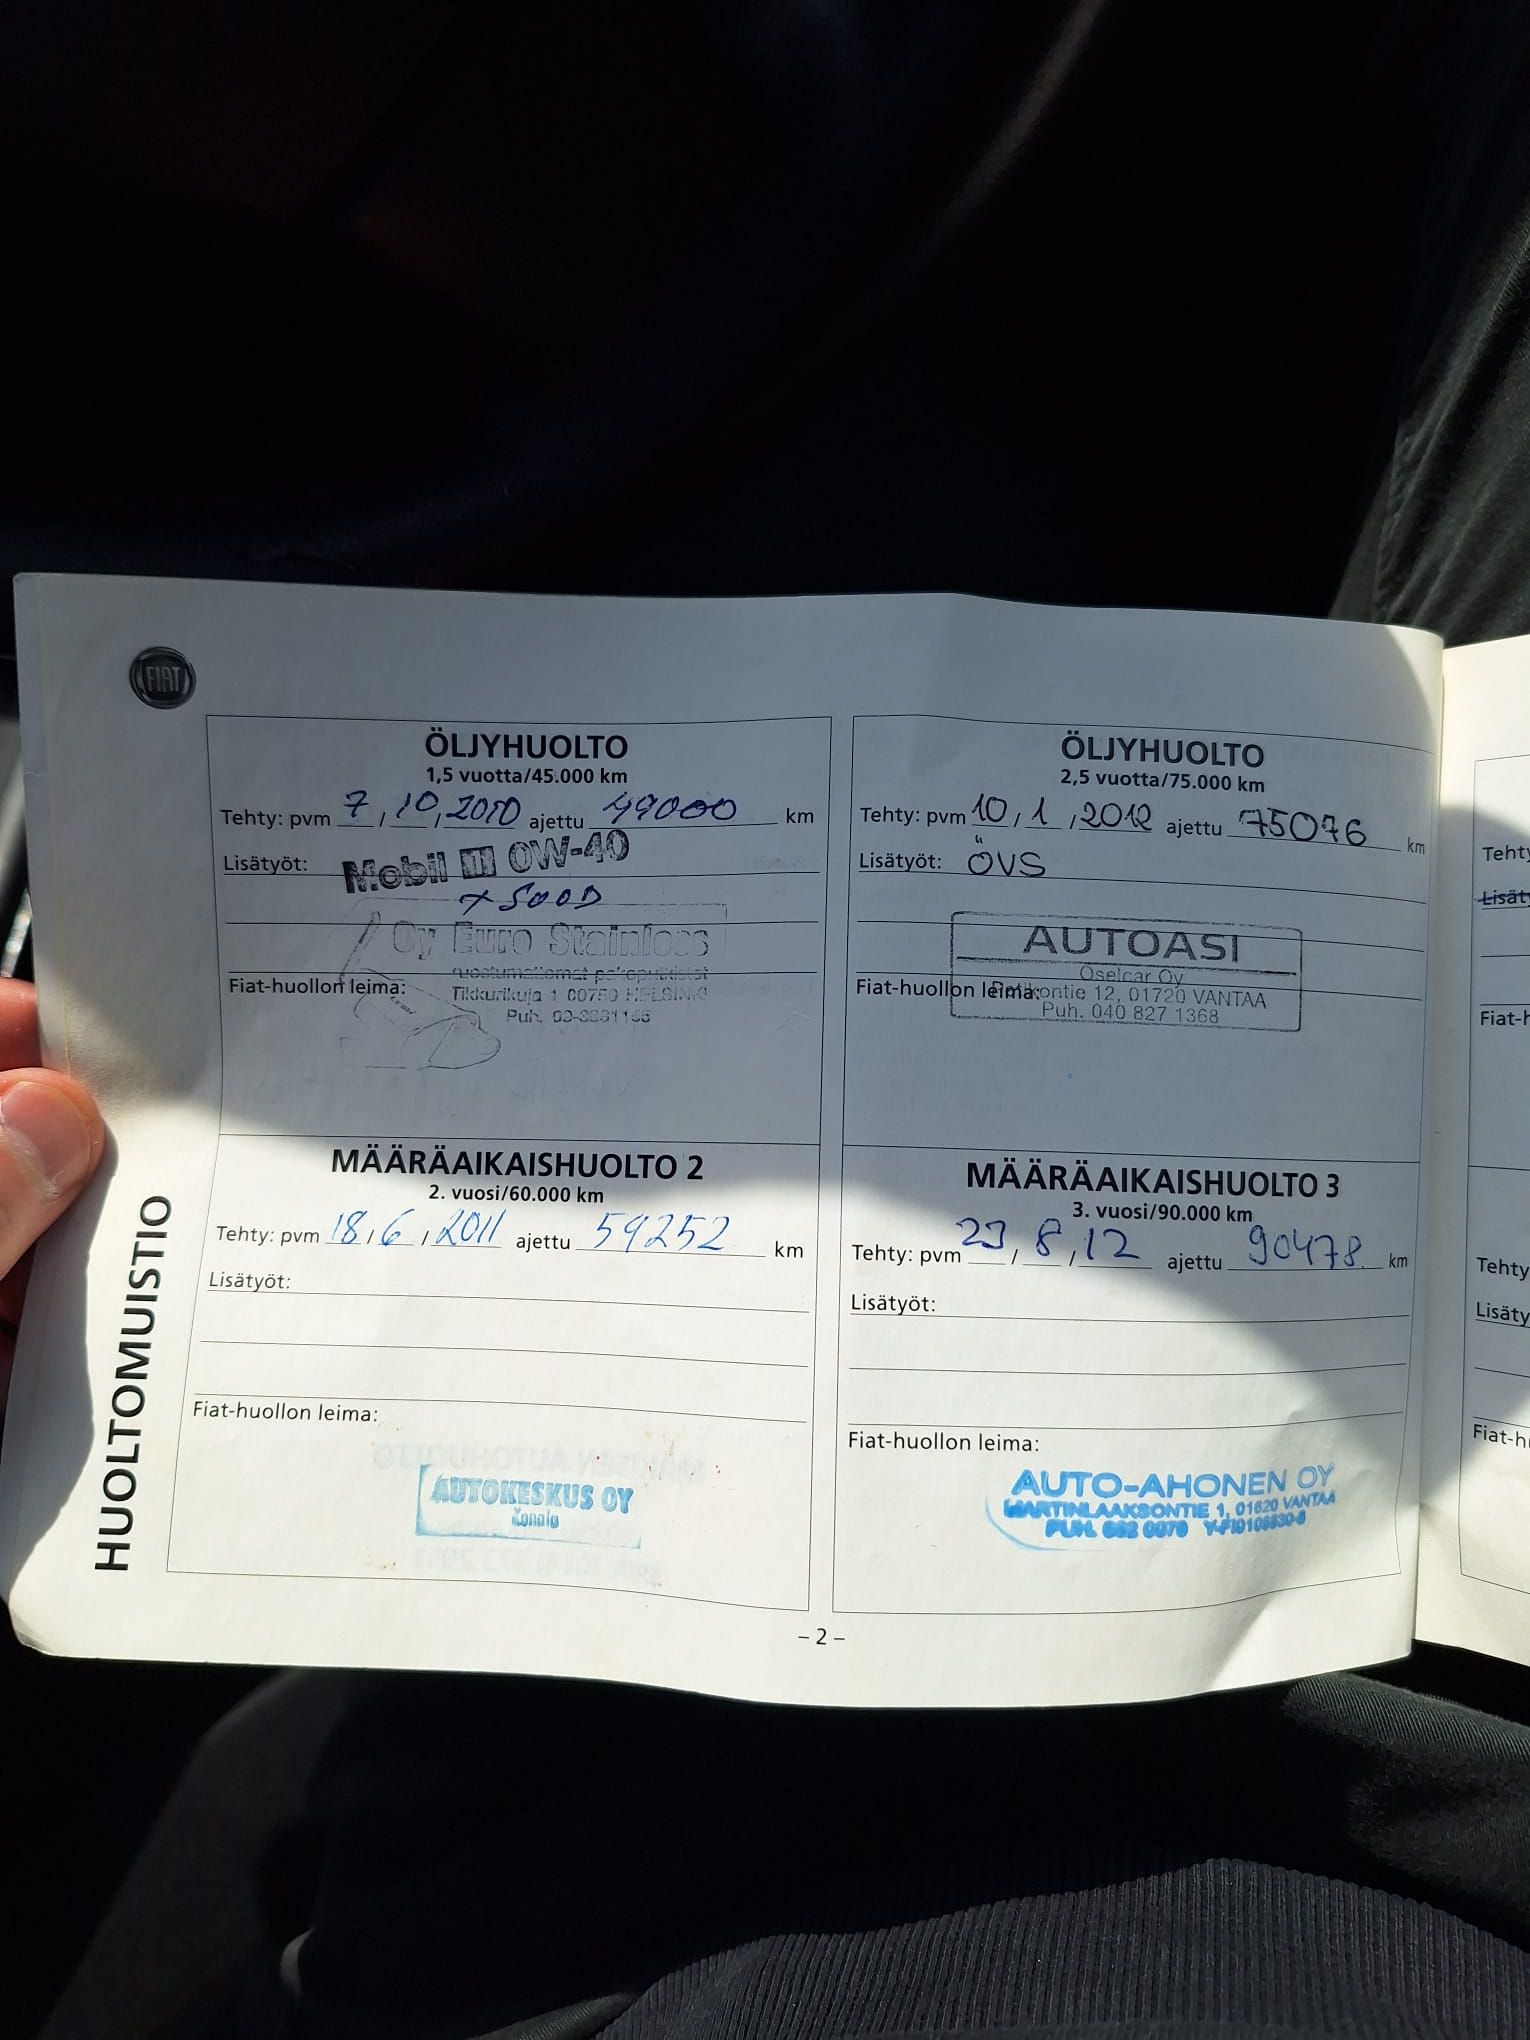 FIAT
HUOLTOMUISTIO
ÖLJYHUOLTO
1,5 vuotta/45.000 km
Tehty: pvm 7, 10, 2010 ajettu 49000 km
Lisätyöt: Mobil 1 0W-40
Oy Euro Stainless
ruostumattomat pakoputkistot
Fiat-huollon leima: Tikkurikuja 1 00750 HELSINKI
Puh.
ÖLJYHUOLTO
2,5 vuotta/75.000 km
Tehty: pvm 10, 1, 2012 ajettu 75076 km
Lisätyöt: ÖVS
AUTOASI
Oselcar Oy
Fiat-huollon leima: 12, 01720 VANTAA
Puh. 040 827 1368
MÄÄRÄAIKAISHUOLTO 2
2. vuosi/60.000 km
Tehty: pvm 18, 6, 2011 ajettu 59252 km
Lisätyöt:
Fiat-huollon leima:
AUTOKESKUS OY
Konala
MÄÄRÄAIKAISHUOLTO 3
3. vuosi/90.000 km
Tehty: pvm 23 / 8, 12 ajettu 90478 km
Lisätyöt:
Fiat-huollon leima:
AUTO-AHONEN OY
MARTINLAAKSONTIE 1, 01620 VANTAA
PUH.
– 2 –
Tehty
Lisät
Fiat-h
Tehty
Lisäty
Fiat-h